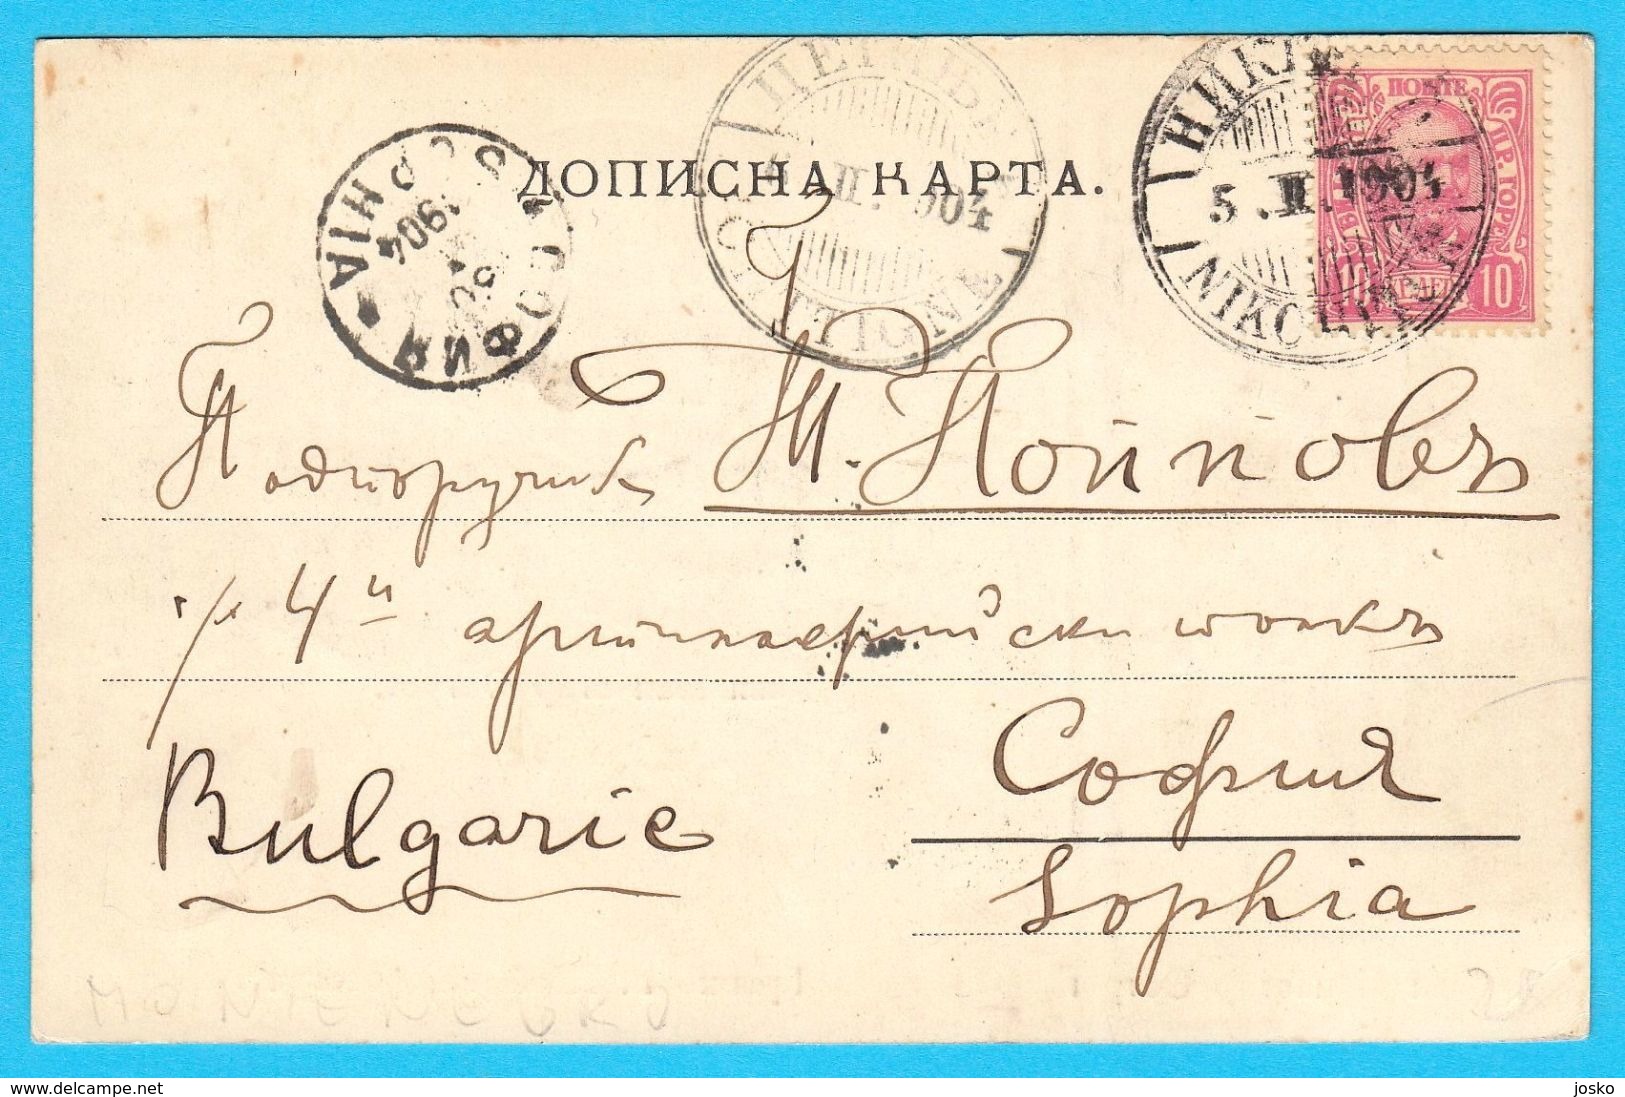 ДОПИСНА КАРТА.
ЦЕТИЊЕ
II. 1904
CETTIGNE
НИКШИЋ
5.II.1904
NIKCHITCH
ПОШТЕ
ЦР. ГОРЕ
10 10
СОФИЯ
SOPHIA
1904
Подпоручикъ Т. Пойповъ
4й артилерийски полкъ
София
Bulgarie
Sophia
MONTENEGRO
delcampe.net
josko